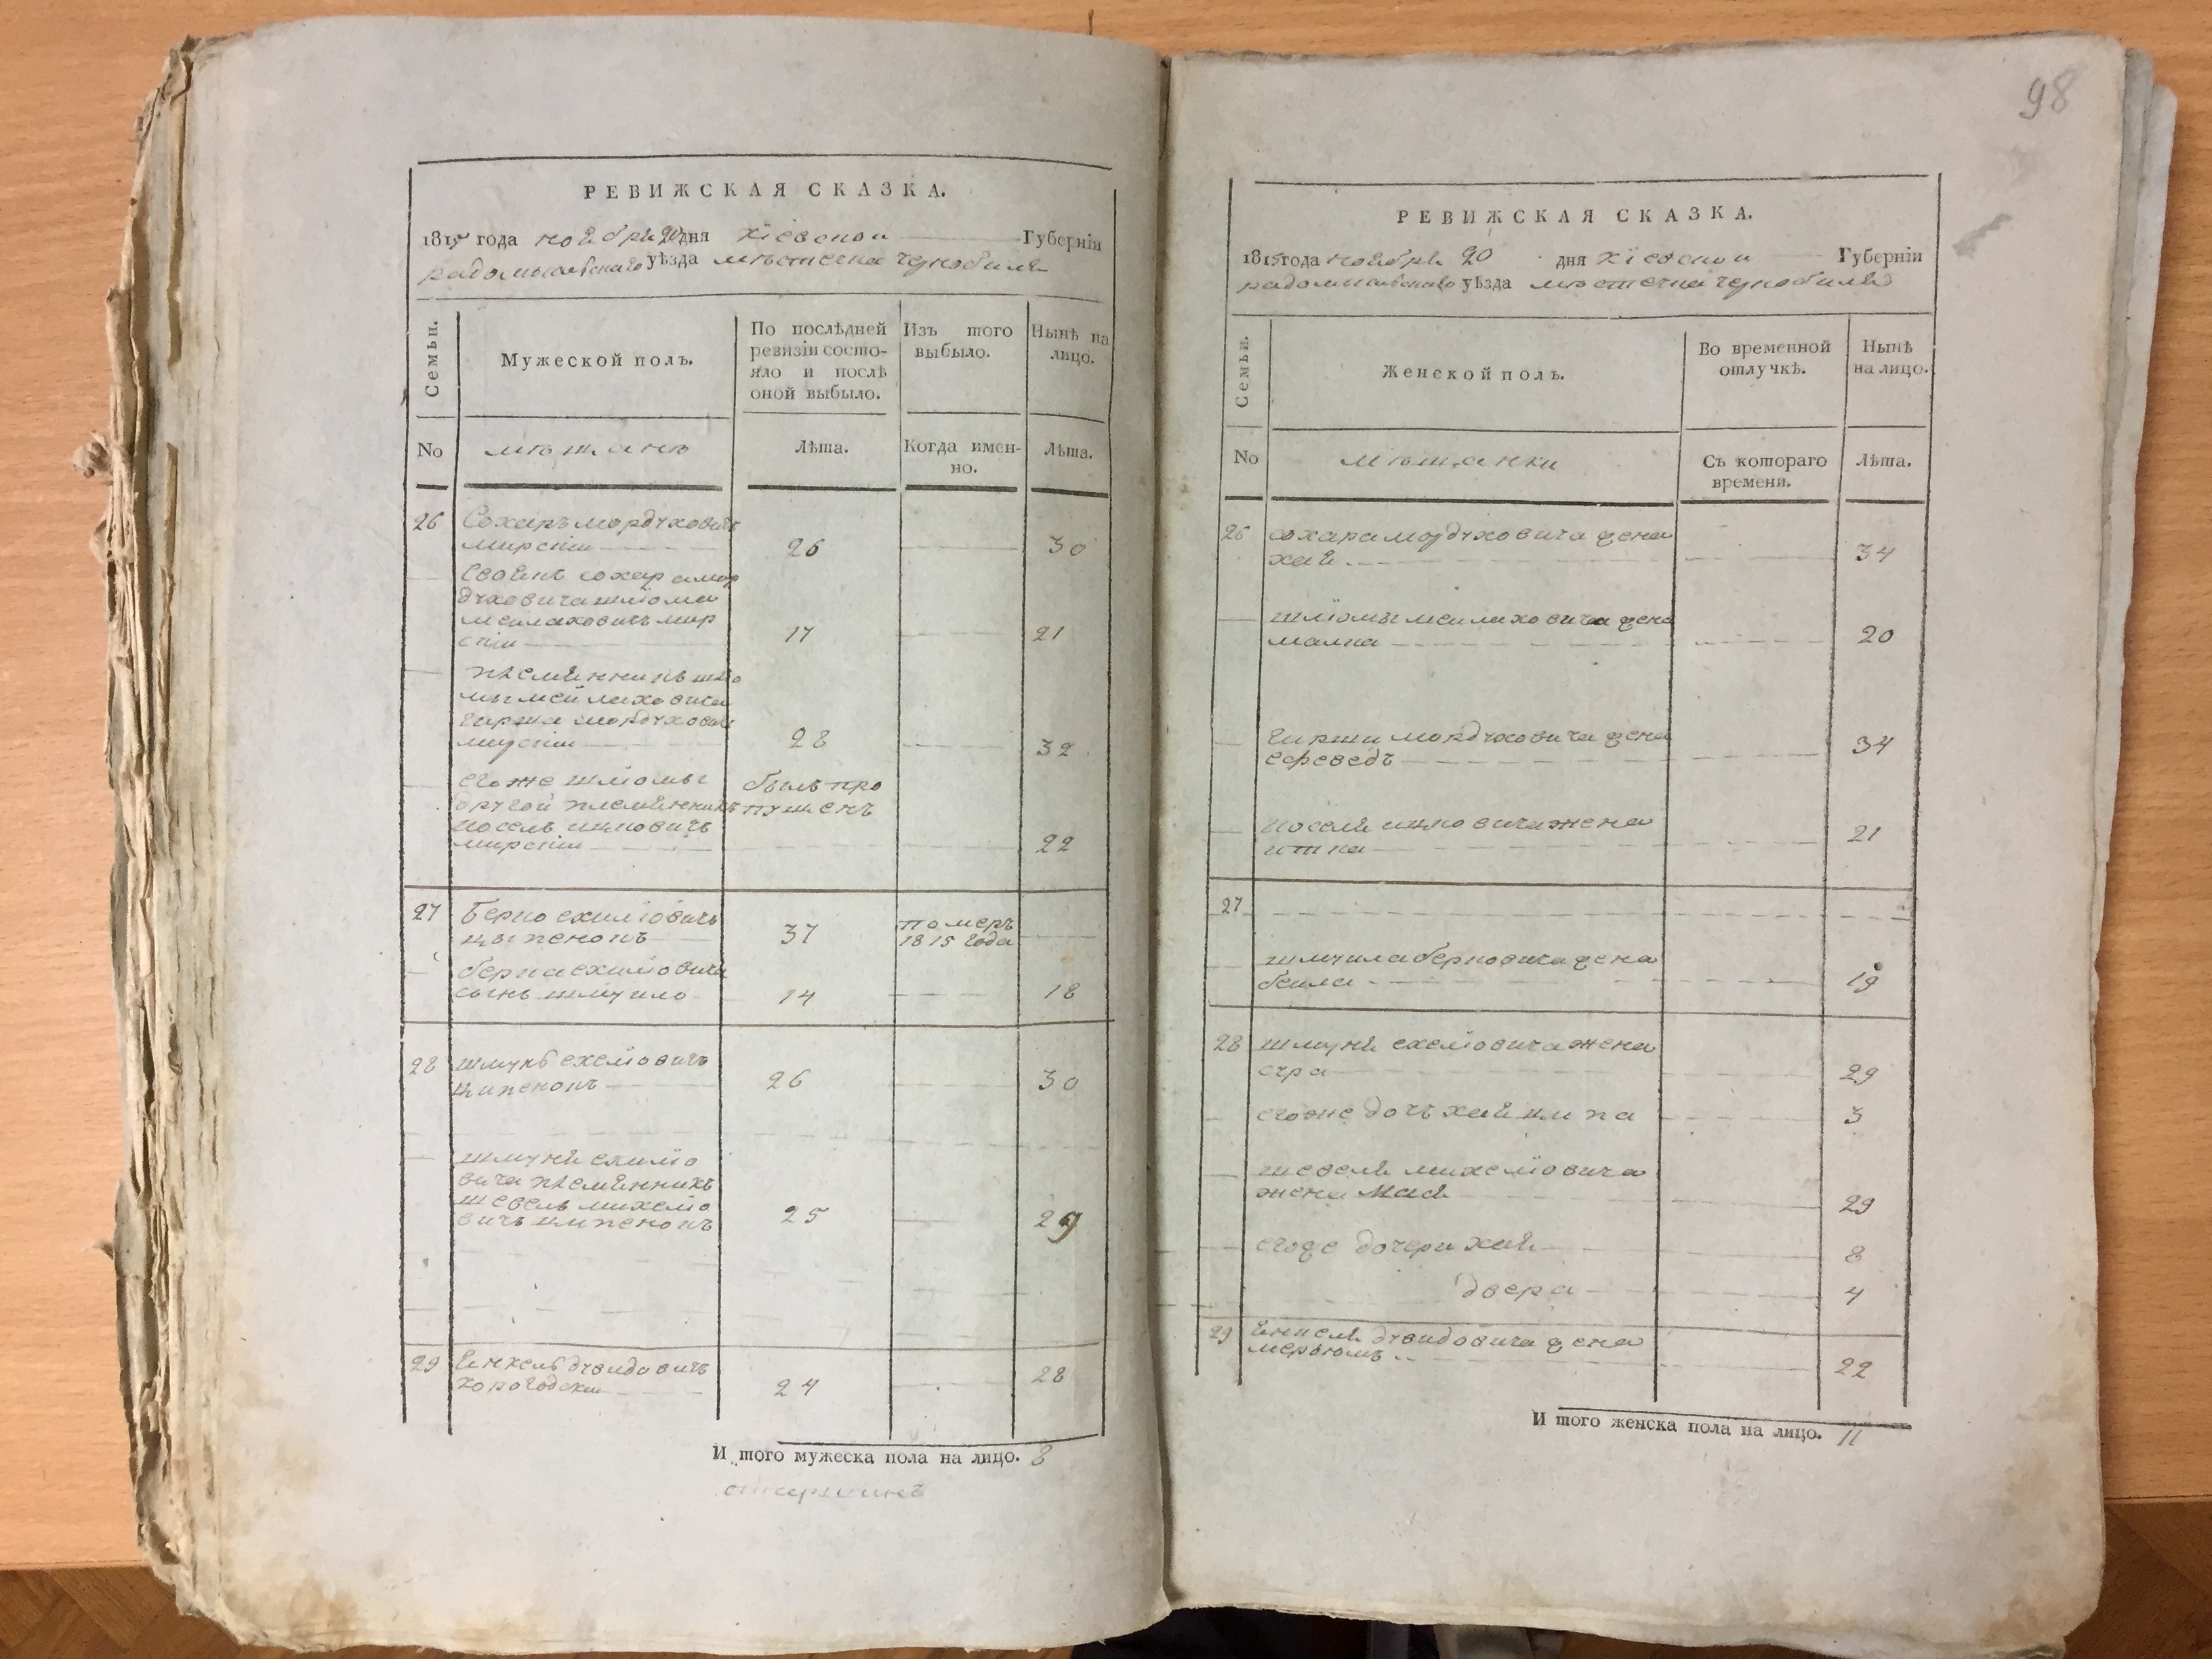 РЕВИЖСКАЯ СКАЗКА.
1815 года ноября 20 дня кіевской Губерніи
радомысльского уѣзда мѣстечка чернобиля
Семьи.
Мужеской полъ.
По послѣдней ревизіи состо-
яло и послѣ
оной выбыло.
Изъ того
выбыло.
Нынѣ на
лицо.
No
мѣщанъ
Лѣта.
Когда имен-
но.
Лѣта.
26 Сохаръ мордуховичъ
мирскіи 26 30
мордуховича шліома
меилаховичъ мир
скіи 17 21
племянникъ шліо
мы мейлаховича
гирша мордухович
мирскіи 28 32
егоже шліомы былъ про
другой племянникъ пущенъ
иосель ицковичъ
мирскіи 22
27 Берко ехиліовичъ 37 померъ
цыпенокъ 1815 года
берка ехиліовича
сынъ шмуило 14 18
28 шмунь ехеліовичъ
ципенокъ 26 30
шмуня ехиліо
вича племянникъ
шевель михеліо
вичъ ципенокъ 25 29
29 Янкель дувидовичъ
хорогодски 24 28
И того мужеска пола на лицо. 8
98
РЕВИЖСКАЯ СКАЗКА.
1815 года ноября 20 дня кіевскои Губерніи
радомысльского уѣзда мѣстечка чернобиля
Семьи.
Женской полъ.
Во временной
отлучкѣ.
Нынѣ
на лицо.
No
мѣщанки
Съ котораго
времени.
Лѣта.
26 сохара мордуховича жена
хая 34
шліомы меилаховича жена
малка 20
гирши мордуховича жена
41 34
иоселя ицковича жена
итка 21
27
шмуила берковича жена
беила 19
28 шмуня ехеліовича жена
сура 29
егоже дочъ хаяципа 3
шевеля михеліовича
жена мася 29
егоже дочери хая 8
двера 4
29 Янкеля дувидовича жена
мерьюмъ 22
И того женска пола на лицо. 11